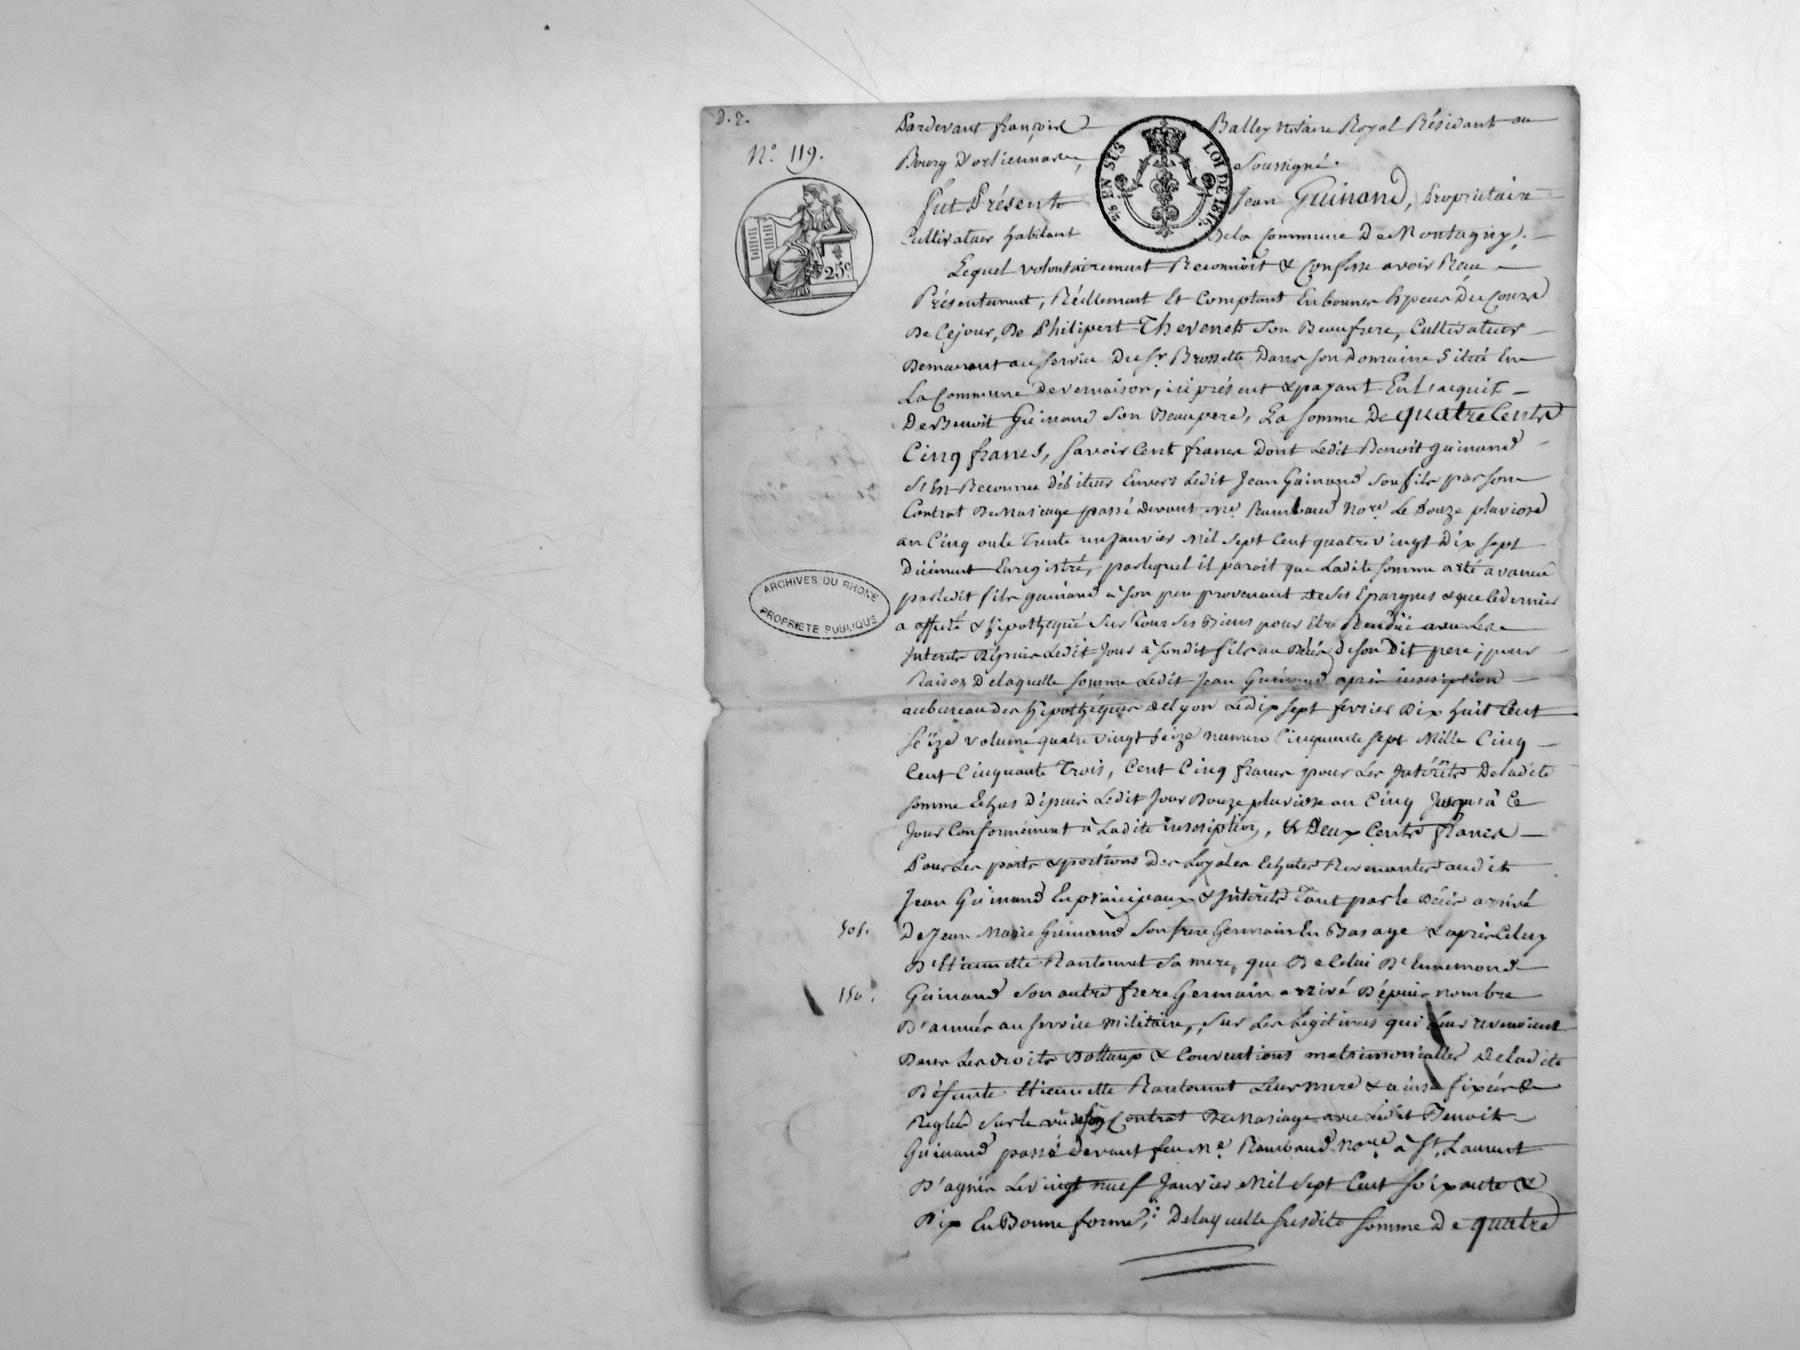 D. 7.
N.o 119.
25c
EN SUS
LOI DE 1816.
ARCHIVES DU RHONE
PROPRIETE PUBLIQUE
Pardevant françois Balley Notaire Royal Résidant au
Bourg d'orlienas, Soussigné.
fut Présent Jean Guinand, Propriétaire
Cultivateur habitant De la Commune De Montagny.
Lequel volontairement Reconnoit & Confesse avoir Recu
Présentement, Réellement Et Comptant En bonnes Especes Du Cours
De Ce jour, De Philipert Thevenet Son Beaufrere, Cultivateur
Demeurant au service Du Sr. Brossette Dans son Domaine Situé En
La Commune de vernaison, ici présent & payant En L'acquit
De Benoit Guinand Son Beaupere, La Somme De quatre Cents
Cinq francs, Savoir Cent francs Dont Ledit Benoit guinand
S'En Reconnu Débiteur Envers Ledit Jean Guinand Son fils par son
Contrat De Mariage passé Devant Me. Rambaud Nore Le Douze pluviose
an Cinq ou le Trente un Janvier Mil Sept Cent quatre vingt Dix Sept
Duement Enregistré, par lequel il paroit que Ladite Somme a été avancée
par ledit fils guinand à Son pere provenant de Ses Epargnes & que Ce dernier
a affecté & hypothequé Sur Tous Ses Biens pour Etre Rendue avec Les
Interets Depuis Ledit Jour à Sondit fils au Décès de Son Dit pere; pour
Raison De laquelle Somme Ledit Jean Guinand a pris inscription
au bureau des hypothéques de Lyon Le dix Sept fevrier Dix huit Cent
Seize volume quatre vingt Seize numero Cinquante Sept Mille Cinq
Cent Cinquante Trois, Cent Cinq francs pour Les Intérêts De ladite
Somme Echus Dépuis Ledit Jour Douze pluviose an Cinq Jusqu'à Ce
Jour Conformément à Ladite inscription, & Deux Cents francs
Pour Les parts & portions Des Loyales Echutes Revenantes audit
Jean Guinand En principaux & Interets Tant par le Décès arrivé
50f. De Jean Marie Guinand Son frere Germain En Bas age & après Celuy
D'Etiennette Rantonnet Sa mere, que De Celui D'Ennemond
150. Guinand Son autre frere Germain arrivé Dépuis nombre
D'années au Service Militaire, Sur Les Légitimes qui Leur revenoient
Dans Les droits Dottaux & Conventions matrimonialles De Ladite
Défunte Etiennette Rantonnet Leur mere & ainsi fixées &
Reglées Sur le vû de Son Contrat De Mariage avec Ledit Benoit
Guinand passé Devant feu Me. Rambaud Nore à St. Laurent
D'agnis Le vingt neuf Janvier Mil Sept Cent Soixante &
Dix En Bonne forme; De laquelle Susdite Somme De quatre